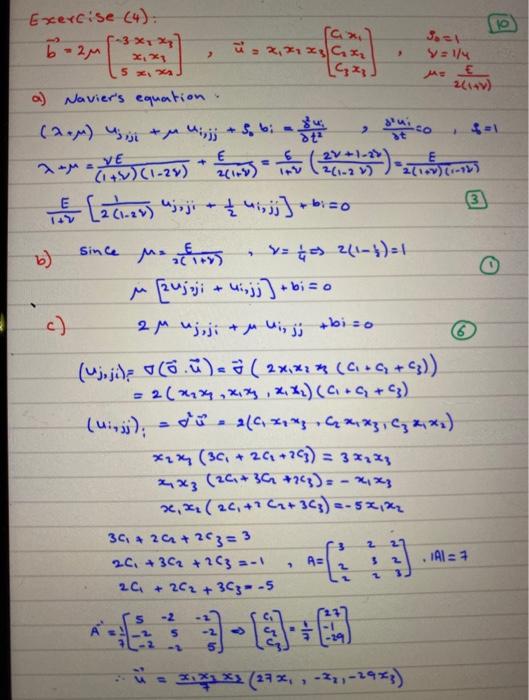 Exercise (4):
10
b⃗ = 2μ [-3 x₂ x₃, x₁ x₃, 5 x₁ x₂] , u⃗ = x₁ x₂ x₃ [C₁ x₁, C₂ x₂, C₃ x₃] , ρ₀ = 1, ν = 1/4, μ = E / 2(1+ν)
a) Navier's equation :
(λ+μ) u_{j,ji} + μ u_{i,jj} + ρ₀ b_i = ∂²u_i/∂t² , ∂²u_i/∂t = 0 , ρ = 1
λ+μ = νE / (1+ν)(1-2ν) + E / 2(1+ν) = E / 1+ν ( 2ν+1-2ν / 2(1-2ν) ) = E / 2(1+ν)(1-2ν)
E / 1+ν [ 1 / 2(1-2ν) u_{j,ji} + 1/2 u_{i,jj} ] + b_i = 0
3
b) since μ = E / 2(1+ν) , ν = 1/4 ⇒ 2(1-1/2) = 1
1
μ [2u_{j,ji} + u_{i,jj}] + b_i = 0
c) 2 μ u_{j,ji} + μ u_{i,jj} + b_i = 0
6
(u_{j,ji})_i = ∇(∇⃗.u⃗) = ∇⃗ ( 2x₁x₂x₃ (C₁ + C₂ + C₃))
= 2 (x₂x₃ , x₁x₃ , x₁x₂) (C₁ + C₂ + C₃)
(u_{i,jj})_i = ∇²u⃗ = 2(C₁ x₂x₃ , C₂ x₁x₃ , C₃ x₁x₂)
x₂x₃ (3C₁ + 2C₂ + 2C₃) = 3x₂x₃
x₁x₃ (2C₁ + 3C₂ + 2C₃) = - x₁x₃
x₁x₂ (2C₁ + 2C₂ + 3C₃) = -5x₁x₂
3C₁ + 2C₂ + 2C₃ = 3
2C₁ + 3C₂ + 2C₃ = -1 , A = [3 2 2; 2 3 2; 2 2 3] . |A| = 7
2C₁ + 2C₂ + 3C₃ = -5
A⁻¹ = 1/7 [5 -2 -2; -2 5 -2; -2 -2 5] ⇒ [C₁; C₂; C₃] = 1/7 [27; -1; -29]
∴ u⃗ = x₁x₂x₃ / 7 (27x₁ , -x₂ , -29x₃)